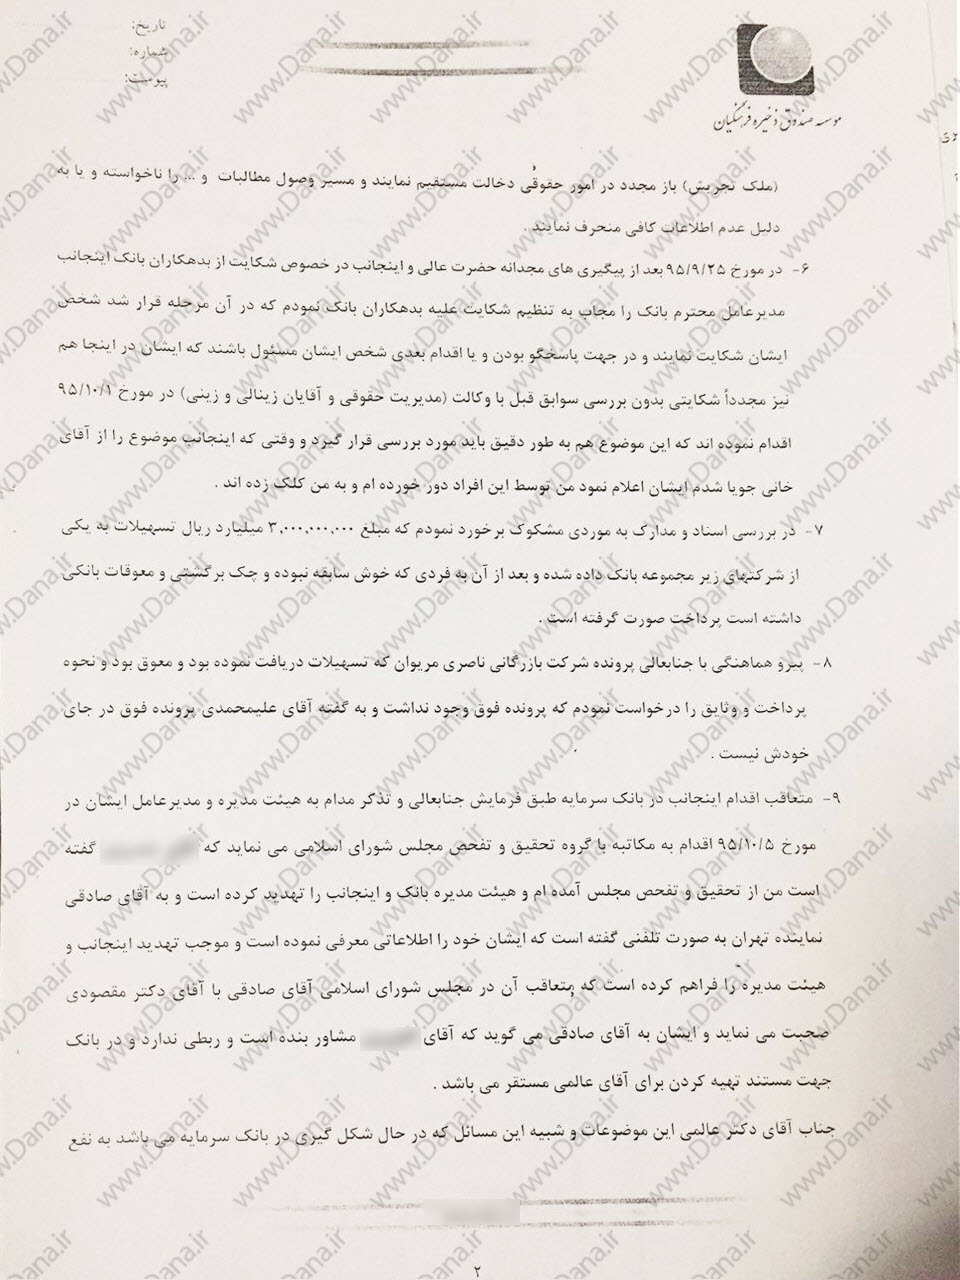 تاریخ:
شماره:
پیوست:
موسسه صندوق ذخیره فرهنگیان
(ملک تجریش) باز مجدد در امور حقوقی دخالت مستقیم نمایند و مسیر وصول مطالبات و ... را ناخواسته و یا به
دلیل عدم اطلاعات کافی منحرف نمایند .
۶- در مورخ ۹۵/۹/۲۵ بعد از پیگیری های مجدانه حضرت عالی و اینجانب در خصوص شکایت از بدهکاران بانک اینجانب
مدیرعامل محترم بانک را مجاب به تنظیم شکایت علیه بدهکاران بانک نمودم که در آن مرحله قرار شد شخص
ایشان شکایت نمایند و در جهت پاسخگو بودن و یا اقدام بعدی شخص ایشان مسئول باشند که ایشان در اینجا هم
نیز مجدداً شکایتی بدون بررسی سوابق قبل با وکالت (مدیریت حقوقی و آقایان زینالی و زینی) در مورخ ۹۵/۱۰/۱
اقدام نموده اند که این موضوع هم به طور دقیق باید مورد بررسی قرار گیرد و وقتی که اینجانب موضوع را از آقای
خانی جویا شدم ایشان اعلام نمود من توسط این افراد دور خورده ام و به من کلک زده اند .
۷- در بررسی اسناد و مدارک به موردی مشکوک برخورد نمودم که مبلغ ۳,۰۰۰,۰۰۰,۰۰۰ میلیارد ریال تسهیلات به یکی
از شرکتهای زیر مجموعه بانک داده شده و بعد از آن به فردی که خوش سابقه نبوده و چک برگشتی و معوقات بانکی
داشته است پرداخت صورت گرفته است .
۸- پیرو هماهنگی با جنابعالی پرونده شرکت بازرگانی ناصری مریوان که تسهیلات دریافت نموده بود و معوق بود و نحوه
پرداخت و وثایق را درخواست نمودم که پرونده فوق وجود نداشت و به گفته آقای علیمحمدی پرونده فوق در جای
خودش نیست .
۹- متعاقب اقدام اینجانب در بانک سرمایه طبق فرمایش جنابعالی و تذکر مدام به هیئت مدیره و مدیرعامل ایشان در
مورخ ۹۵/۱۰/۵ اقدام به مکاتبه با گروه تحقیق و تفحص مجلس شورای اسلامی می نماید که گفته
است من از تحقیق و تفحص مجلس آمده ام و هیئت مدیره بانک و اینجانب را تهدید کرده است و به آقای صادقی
نماینده تهران به صورت تلفنی گفته است که ایشان خود را اطلاعاتی معرفی نموده است و موجب تهدید اینجانب و
هیئت مدیره را فراهم کرده است که متعاقب آن در مجلس شورای اسلامی آقای صادقی با آقای دکتر مقصودی
صحبت می نماید و ایشان به آقای صادقی می گوید که آقای مشاور بنده است و ربطی ندارد و در بانک
جهت مستند تهیه کردن برای آقای عالمی مستقر می باشد .
جناب آقای دکتر عالمی این موضوعات و شبیه این مسائل که در حال شکل گیری در بانک سرمایه می باشد به نفع
۲
www.Dana.ir